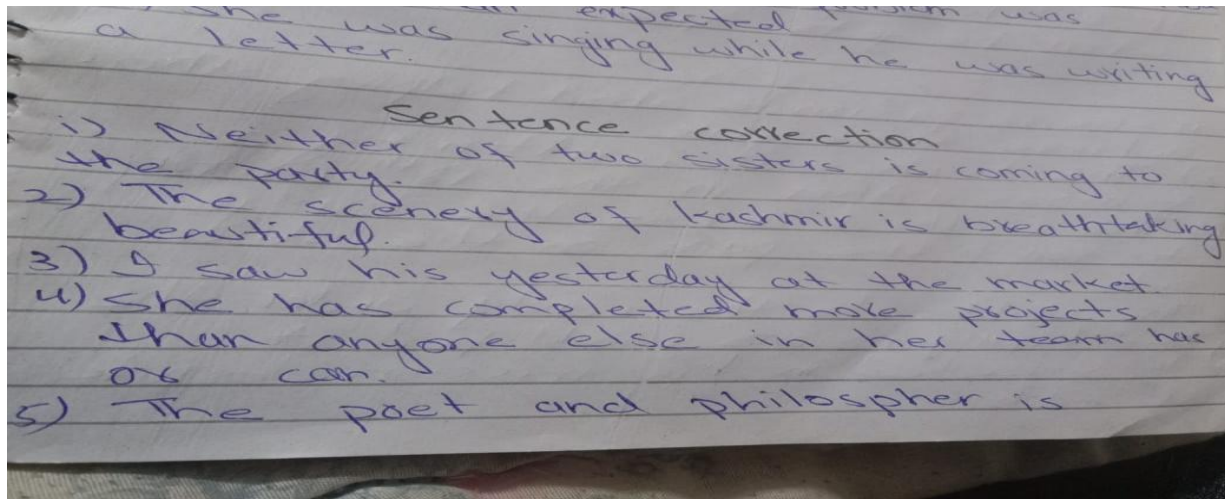 she was an expected was
a letter. singing while he was writing
Sentence correction
i) Neither of two sisters is coming to
the party.
2) The scenery of Kashmir is breathtaking
beautiful.
3) I saw his yesterday at the market.
4) She has completed more projects
than anyone else in her team has
or can.
5) The poet and philospher is